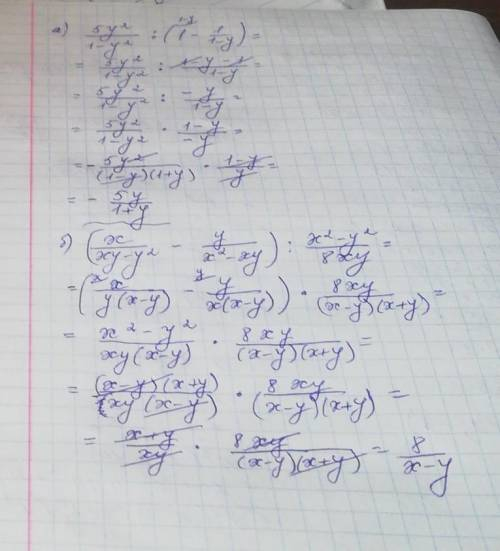 а) 5y²/(1-y²) : (1 - 1/(1-y)) =
= 5y²/(1-y²) : (1-y-1)/(1-y) =
= 5y²/(1-y²) : (-y)/(1-y) =
= 5y²/(1-y²) · (1-y)/(-y) =
= - 5y²/((1-y)(1+y)) · (1-y)/y =
= - 5y/(1+y)
б) (x/(xy-y²) - y/(x²-xy)) : (x²-y²)/(8xy) =
= (x/(y(x-y)) - y/(x(x-y))) · 8xy/((x-y)(x+y)) =
= (x²-y²)/(xy(x-y)) · 8xy/((x-y)(x+y)) =
= ((x-y)(x+y))/(xy(x-y)) · 8xy/((x-y)(x+y)) =
= (x+y)/(xy) · 8xy/((x-y)(x+y)) = 8/(x-y)